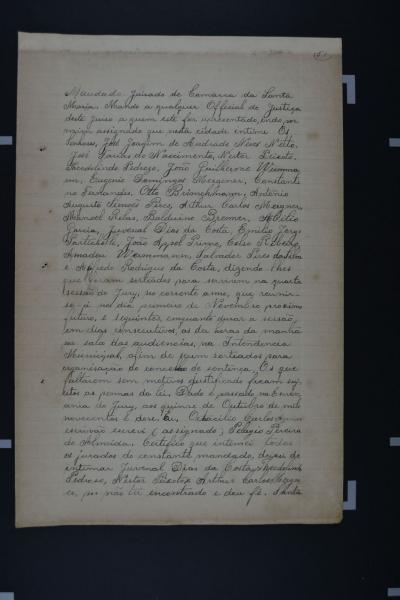 Mandado Juisado de Comarca da Santa
Maria. Mando a qualquer Official de Justiça
deste Juiso a quem este for apresentado, indo por
mim assignado que nesta cidade intime Os
Senhores, José Joaquim de Andrade Neves Netto,
José Farias do Nascimento, Nestor Peixoto,
Theodolindo Pedroso, João Guilherme
Eugenio Domingos Mergener, Constanti
no Fernandes, Otto Brinckmann, Antonio
Augusto Simões Pires, Arthur Carlos Mergener,
Manoel Ribas, Balduino Bremer,
Garcia, Juvenal Dias da Costa, Emilio Jorge
João Appel Primo, Celso Ribeiro,
Amadeu Weinmann, Salvador Pires da Silva
e Alfredo Rodrigues da Costa, dizendo-lhes
que foram sorteados para servirem na quarta
sessão do Jury, no corrente anno, que reunir-
se-á no dia primeiro de Novembro proximo
futuro, e seguintes, emquanto durar a sessão,
em dias consecutivos, as dez horas da manhã
na sala das audiencias, na Intendencia
Municipal, afim de serem sorteados para
organisação do conselho de sentença. Os que
faltarem sem motivos justificado ficam suj
eitos as pennas da lei. Dado e passado na Escriv
ania do Jury, aos quinze de Outubro de mil
novecentos e Octacilio Carlos
escrivão escrevi (assignado) Pelagio Pereira
de Almeida. Certifico que intimei todos
os jurados do constante mandado, deixei de
intimar Juvenal Dias da Costa, Theodolindo
Pedroso, Nestor Peixoto, Arthur Carlos
por não ter encontrado e dou fé. Santa